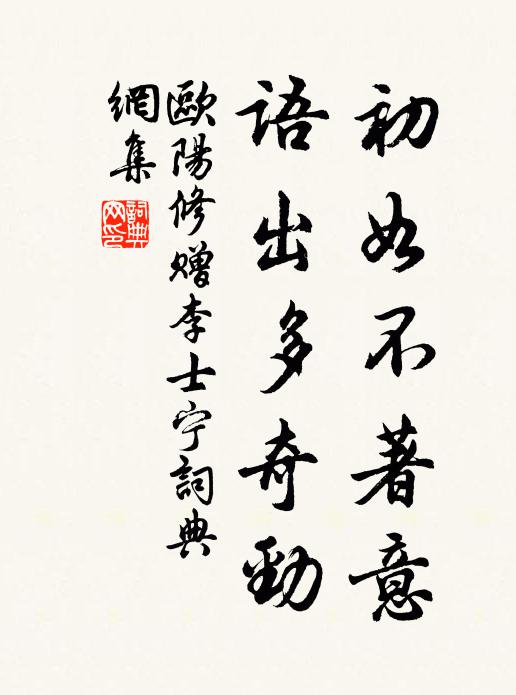 初如不著意
語出多奇勁
歐陽修贈李士宁詞典
網集
詞典网印